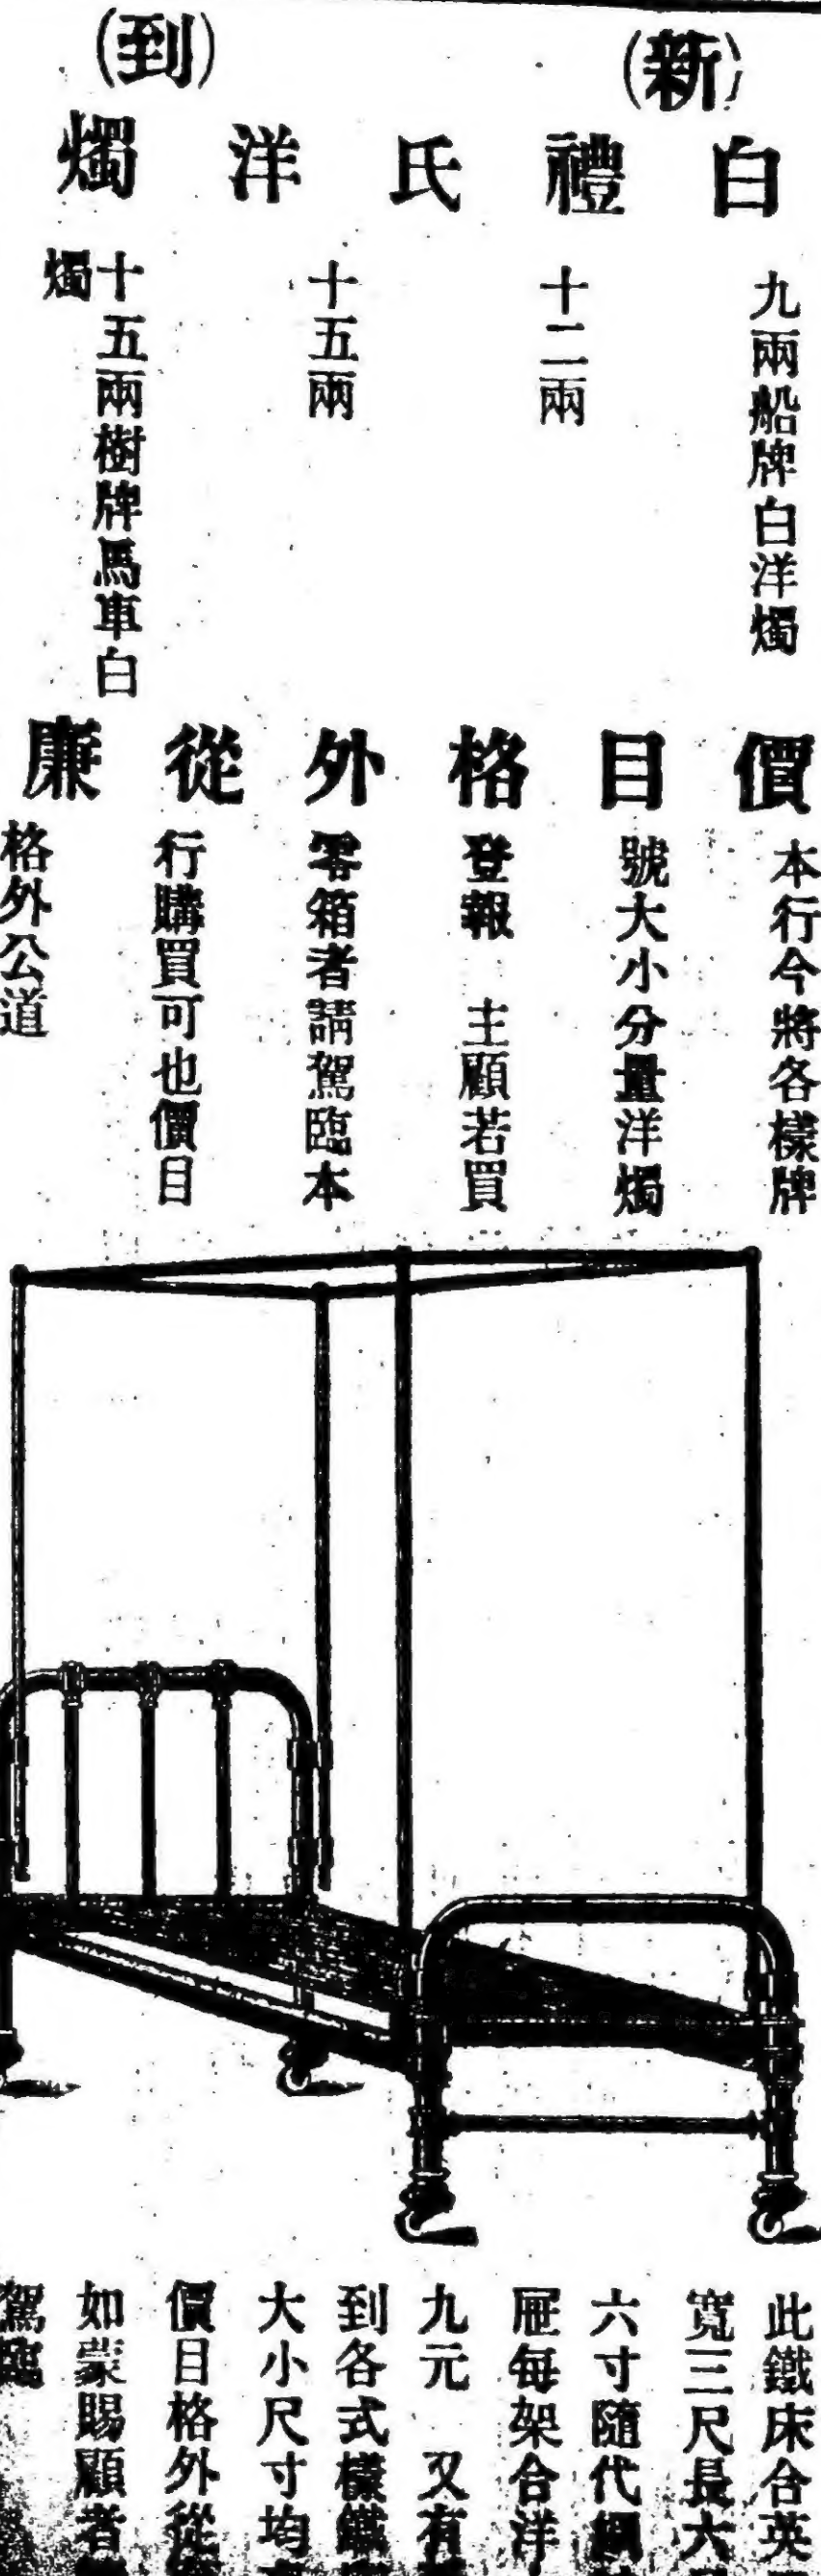 (新)(到)
白禮氏洋燭
九兩船牌白洋燭
十二兩
十五兩
十五兩樹牌馬車白
燭
價目格外從廉
本行今將各樣牌
號大小分量洋燭
登報 主顧若買
零箱者請駕臨本
行購買可也價目
格外公道
此鐵床合英
寬三尺長六
六寸隨代鋼
屉每架合洋
九元 又有
到各式樣鐵
大小尺寸均
價目格外從
如蒙賜顧者
駕臨